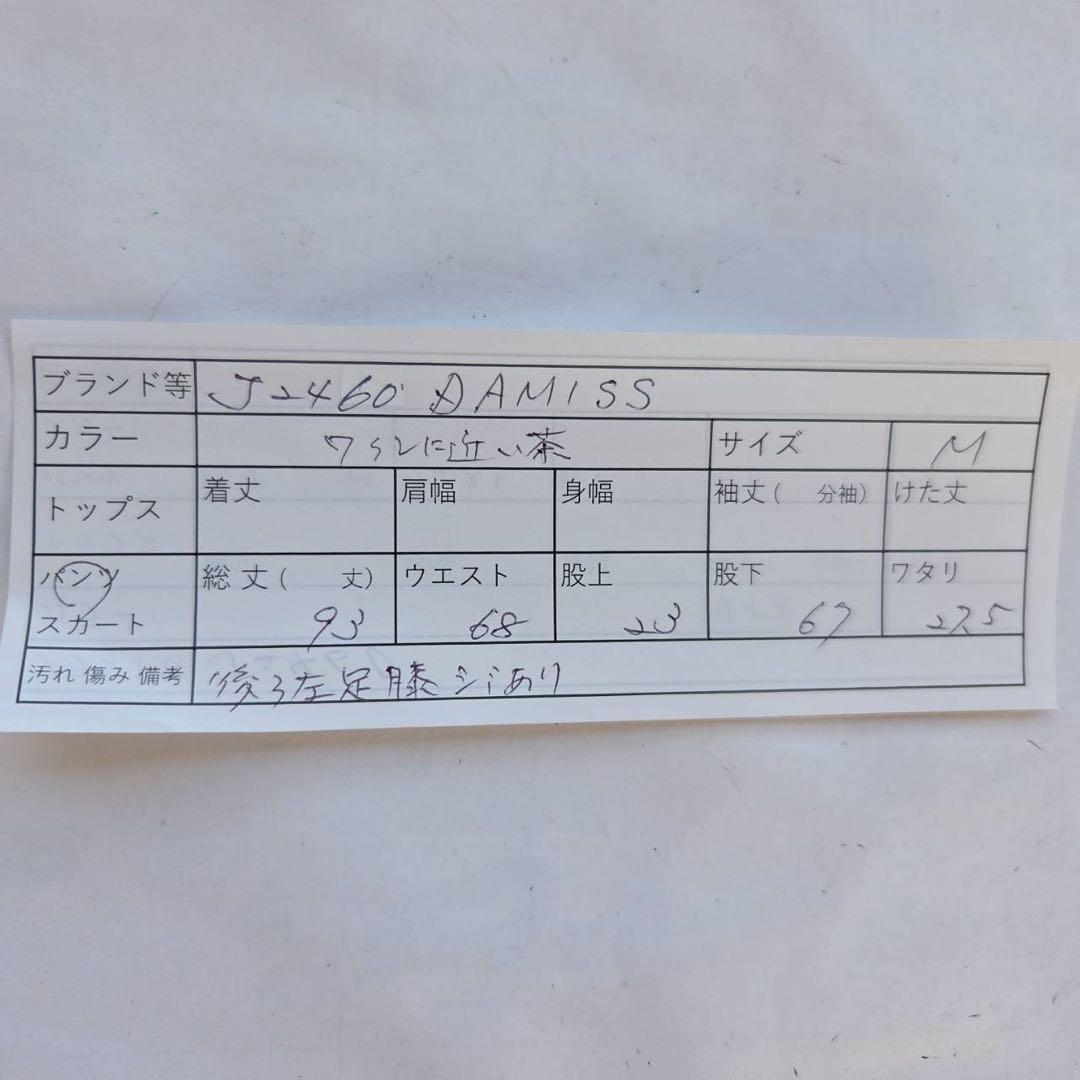 ブランド等 J2460 DAMISS
カラー ワインに近い茶 サイズ M
トップス 着丈 肩幅 身幅 袖丈( 分袖) けた丈
パンツ 総丈( 丈) ウエスト 股上 股下 ワタリ
スカート 93 68 23 67 27.5
汚れ 傷み 備考 後ろ左足膝シミあり